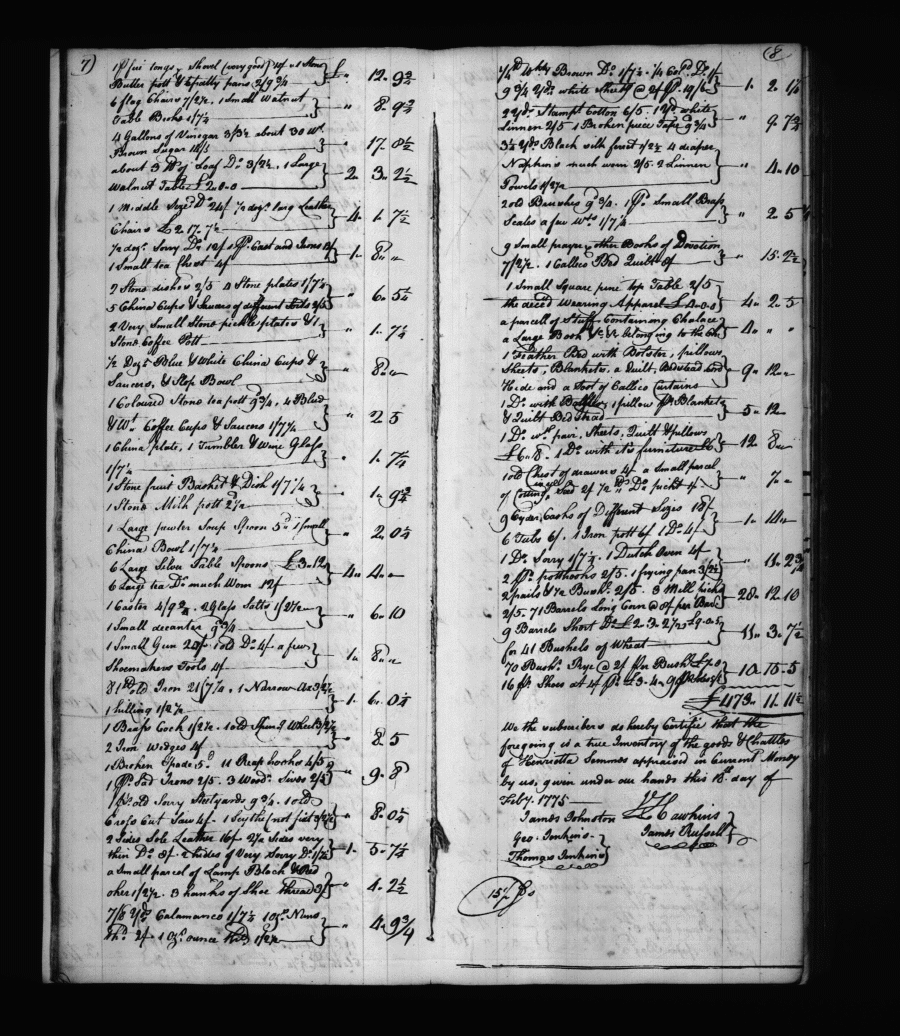 7)
1 Pr fire tongs, Shovel (very good) 4/ 1 Stone
Butter pott & 4 patty pans 2/9¾ } £ " 12. 9¾
6 flag Chairs 7/2½, 1 Small Walnut
Table Broke 1/7¼ } " 8. 9¾
4 Gallons of Vinegar 3/3½ about 30 Wt.
Brown Sugar } " 17. 8½
about 3 lb of Loaf Do. 3/2½, 1 Large
Walnut Table £2.0.0 } 2. 3. 2½
1 Middle Sized Do. 24/ ½ dozn. long Leather
Chairs £2.17.7½ } 4. 1. 7½
½ dozn. Sorry Do. 12/ Cart and Irons
1 Small tea Chest 4/ } 1. 8. "
2 Stone dishes 2/5 Stone plates 1/7¼
5 China Cups & Saucers of different sorts 2/5 } " 6. 5¼
2 Very Small Stone pickle plates & 1
Stone Coffee Pott } " 1. 7¼
½ Dozn Blue & White China Cups &
Saucers, & Slop Bowl } " 8. "
1 Coloured Stone tea pott 9¾, 4 Blue
& Wt. Coffee Cups & Saucers 1/7¼ } " 2 5
1 China plate, 1 Tumbler & Wine Glass
1/7¼ } " 1. 7¼
1 Stone fruit Basket & Dish 1/7¼
1 Stone Milk pott 2½ } " 1. 9¾
1 Large pewter Soup Spoon 5d 1 Small
China Bowl 1/7¼ } " 2. 0¼
6 Large Silver Table Spoons £3.12
6 Large tea Do. much Worn 12/ } 4. 4. "
1 Caster 4/9¾, 2 Glass Salts 1/2½
1 Small decanter 9¾ } " 6. 10
1 Small Gun 20/ 1 old Do. 4/ a few
Shoemakers Tools 4/ } 1. 8. "
81 lb old Iron 21/7¼, 1 Narrow Ax 3/2½
1 hilling 1/2½ } 1. 6. 0¼
1 Brass Cock 1/2½, 1 old Spin'g Wheel 3/2½
2 Iron Wedges 4/ } " 8. 5
1 Broken Spade 5d. 11 Reap hooks 4/5
1 Pr. Sad Irons 2/5. 3 Wood'n Sives 2/5 } " 9. 8
1 Pr. old Sorry Steelyards 9¾. 1 old
Cross Cut Saw 4/ 1 Scythe not 3/2½ } " 8. 0¼
2 Sides Sole Leather 16/ 2½ Sides very
thin Do. 8/ 2 hides of Very Sorry Do. } 1. 5. 7¼
a Small parcel of Lamp Black & Red
oker 1/2½. 3 hanks of Shoe thread 3/ } " 4. 2½
7/8 Yd. Calamanco 1/7¼ 1 oz. Nuns
thd. 2/ 1 oz. ounce thd. 1/2½ } " 4. 9¾
(8
Brown Do. 1/7¼ ¼ Cold. Do. 1/
9¾ Yds. white Sheet @ 2/ Pr. 19/6 } 1. 2. 1½
2 Yds. Stampt Cotton 6/5. 1 Yd white
Linnen 2/5 1 Broken piece Tape 9¾ } " 9. 7¾
3½ Yds. Black silk ferret 1/2½ 4 diaper
Napkins much worn 2/5 2 Linnen
Towels 1/2½ } " 4. 10
2 old Brushes 9¾. 1 Pr. Small Brass
Scales a few Wts. 1/7¼ } " 2. 5
9 Small prayer & other Books of Devotion
7/2½. 1 Callico Bed Quilt 8/ } " 15. 2½
1 Small Square pine top Table 2/5
the deced. Wearing Apparel £4.0.0 } 4. 2. 5
a parcell of Stuff Containing Chalace
a Large Book &c. &c. belonging to the Ch. } 4. " "
1 Feather Bed with Bolster, pillows
Sheets, Blankets, a Quilt, Bedstead cord
Hide and a Sort of Callico Curtains } 9. 12. "
1 Do. with Bolster 1 pillow Pr. Blankets
& Quilt Bed Stead } 5. 12
1 Do. wt. pair Sheets, Quilt & pillows
£6.8. 1 Do. with it's furniture £6 } 12 8. "
1 old Chest of drawers 4/ a Small parcel
of Cotton in ye Seed 2/ 7½ lb Do. pickt 4/ } " 7. "
9 Cyder Casks of Different Sizes 18/
6 Tubs 6/. 1 Iron pott 6/ 1 Do. 4/ } 1. 14. "
1 Do. Sorry 1/7¼. 1 Dutch Oven 4/
2 Pr. potthooks 2/5. 1 frying pan 3/2½ } " 11. 2¾
2 pails & ½ Bush. 2/5. 3 Mill picks
2/5. 71 Barrels Long Corn @ 8/ per Bar. } 28. 12. 10
9 Barrels Short Do. £2.3.2½
for 41 Bushels of Wheat } 11. 3. 7½
70 Bush. Rye @ 2/ Per Bush. £7.0
16 Pr. Shoes at 4/ Pr. £3.4 } 10. 15. 5
£473. 11. 11½
We the subscribers do hereby Certifie that the
foregoing is a true Inventory of the goods & Chattles
of Henrietta Semmes appraised in Current Money
by us, given under our hands this 18th day of
Feby. 1775
James Johnston Hawkins
Geo. Jenkins James Russell
Thomas Jenkins
15/